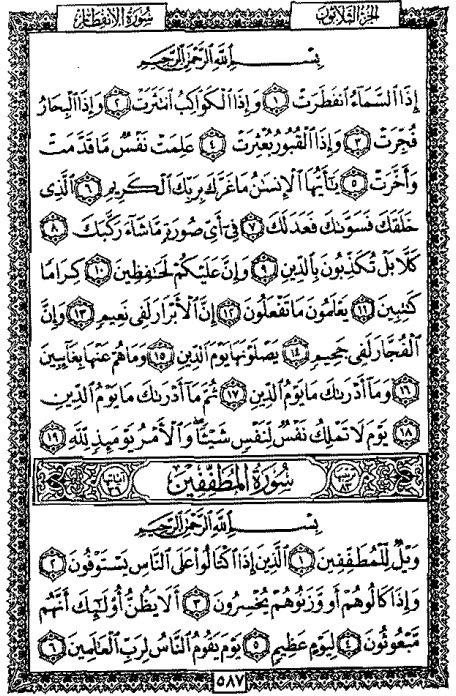 سُورَةُ الانفِطَار الجُزءُ الثَّلَاثُونَ
بِسْمِ اللَّهِ الرَّحْمَٰنِ الرَّحِيمِ
إِذَا السَّمَاءُ انفَطَرَتْ ١ وَإِذَا الْكَوَاكِبُ انتَثَرَتْ ٢ وَإِذَا الْبِحَارُ
فُجِّرَتْ ٣ وَإِذَا الْقُبُورُ بُعْثِرَتْ ٤ عَلِمَتْ نَفْسٌ مَّا قَدَّمَتْ
وَأَخَّرَتْ ٥ يَٰأَيُّهَا الْإِنسَٰنُ مَا غَرَّكَ بِرَبِّكَ الْكَرِيمِ ٦ الَّذِي
خَلَقَكَ فَسَوَّىٰكَ فَعَدَلَكَ ٧ فِي أَيِّ صُورَةٍ مَّا شَاءَ رَكَّبَكَ ٨
كَلَّا بَلْ تُكَذِّبُونَ بِالدِّينِ ٩ وَإِنَّ عَلَيْكُمْ لَحَٰفِظِينَ ١٠ كِرَامًا
كَٰتِبِينَ ١١ يَعْلَمُونَ مَا تَفْعَلُونَ ١٢ إِنَّ الْأَبْرَارَ لَفِي نَعِيمٍ ١٣ وَإِنَّ
الْفُجَّارَ لَفِي جَحِيمٍ ١٤ يَصْلَوْنَهَا يَوْمَ الدِّينِ ١٥ وَمَا هُمْ عَنْهَا بِغَائِبِينَ
١٦ وَمَا أَدْرَىٰكَ مَا يَوْمُ الدِّينِ ١٧ ثُمَّ مَا أَدْرَىٰكَ مَا يَوْمُ الدِّينِ
١٨ يَوْمَ لَا تَمْلِكُ نَفْسٌ لِّنَفْسٍ شَيْـًٔا ۖ وَالْأَمْرُ يَوْمَئِذٍ لِّلَّهِ ١٩
سُورَةُ المُطَفِّفِين
بِسْمِ اللَّهِ الرَّحْمَٰنِ الرَّحِيمِ
وَيْلٌ لِّلْمُطَفِّفِينَ ١ الَّذِينَ إِذَا اكْتَالُوا عَلَى النَّاسِ يَسْتَوْفُونَ ٢
وَإِذَا كَالُوهُمْ أَو وَّزَنُوهُمْ يُخْسِرُونَ ٣ أَلَا يَظُنُّ أُولَٰئِكَ أَنَّهُم
مَّبْعُوثُونَ ٤ لِيَوْمٍ عَظِيمٍ ٥ يَوْمَ يَقُومُ النَّاسُ لِرَبِّ الْعَٰلَمِينَ ٦
٥٨٧